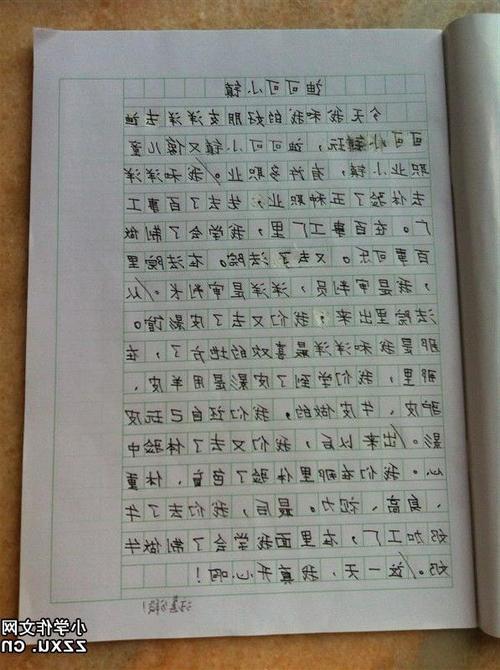 迪可可小镇
今天我和我的好朋友洋洋去迪
可可小镇玩，迪可可小镇又像儿童
职业小镇，有许多职业。我和洋洋
去体验了五种职业，先去了百事工
厂。在百事工厂里，我学会了制做
百事可乐。又去了法院。在法院里
，我是审判员，洋洋是审判长。从
法院里出来，我们又去了皮影馆。
那是我和洋洋最喜欢的地方了，在
那里，我们学到了皮影是用羊皮、
驴皮、牛皮做的。我们还自己玩皮
影。出来以后，我们又去了体验中
心。我们在那里体验了色盲、体重
、身高、视力。最后，我们去了牛
奶加工厂，在里面我学会了制做牛
奶。这一天，我真开心啊！
注意分段！
小学作文网
zzxu.cn